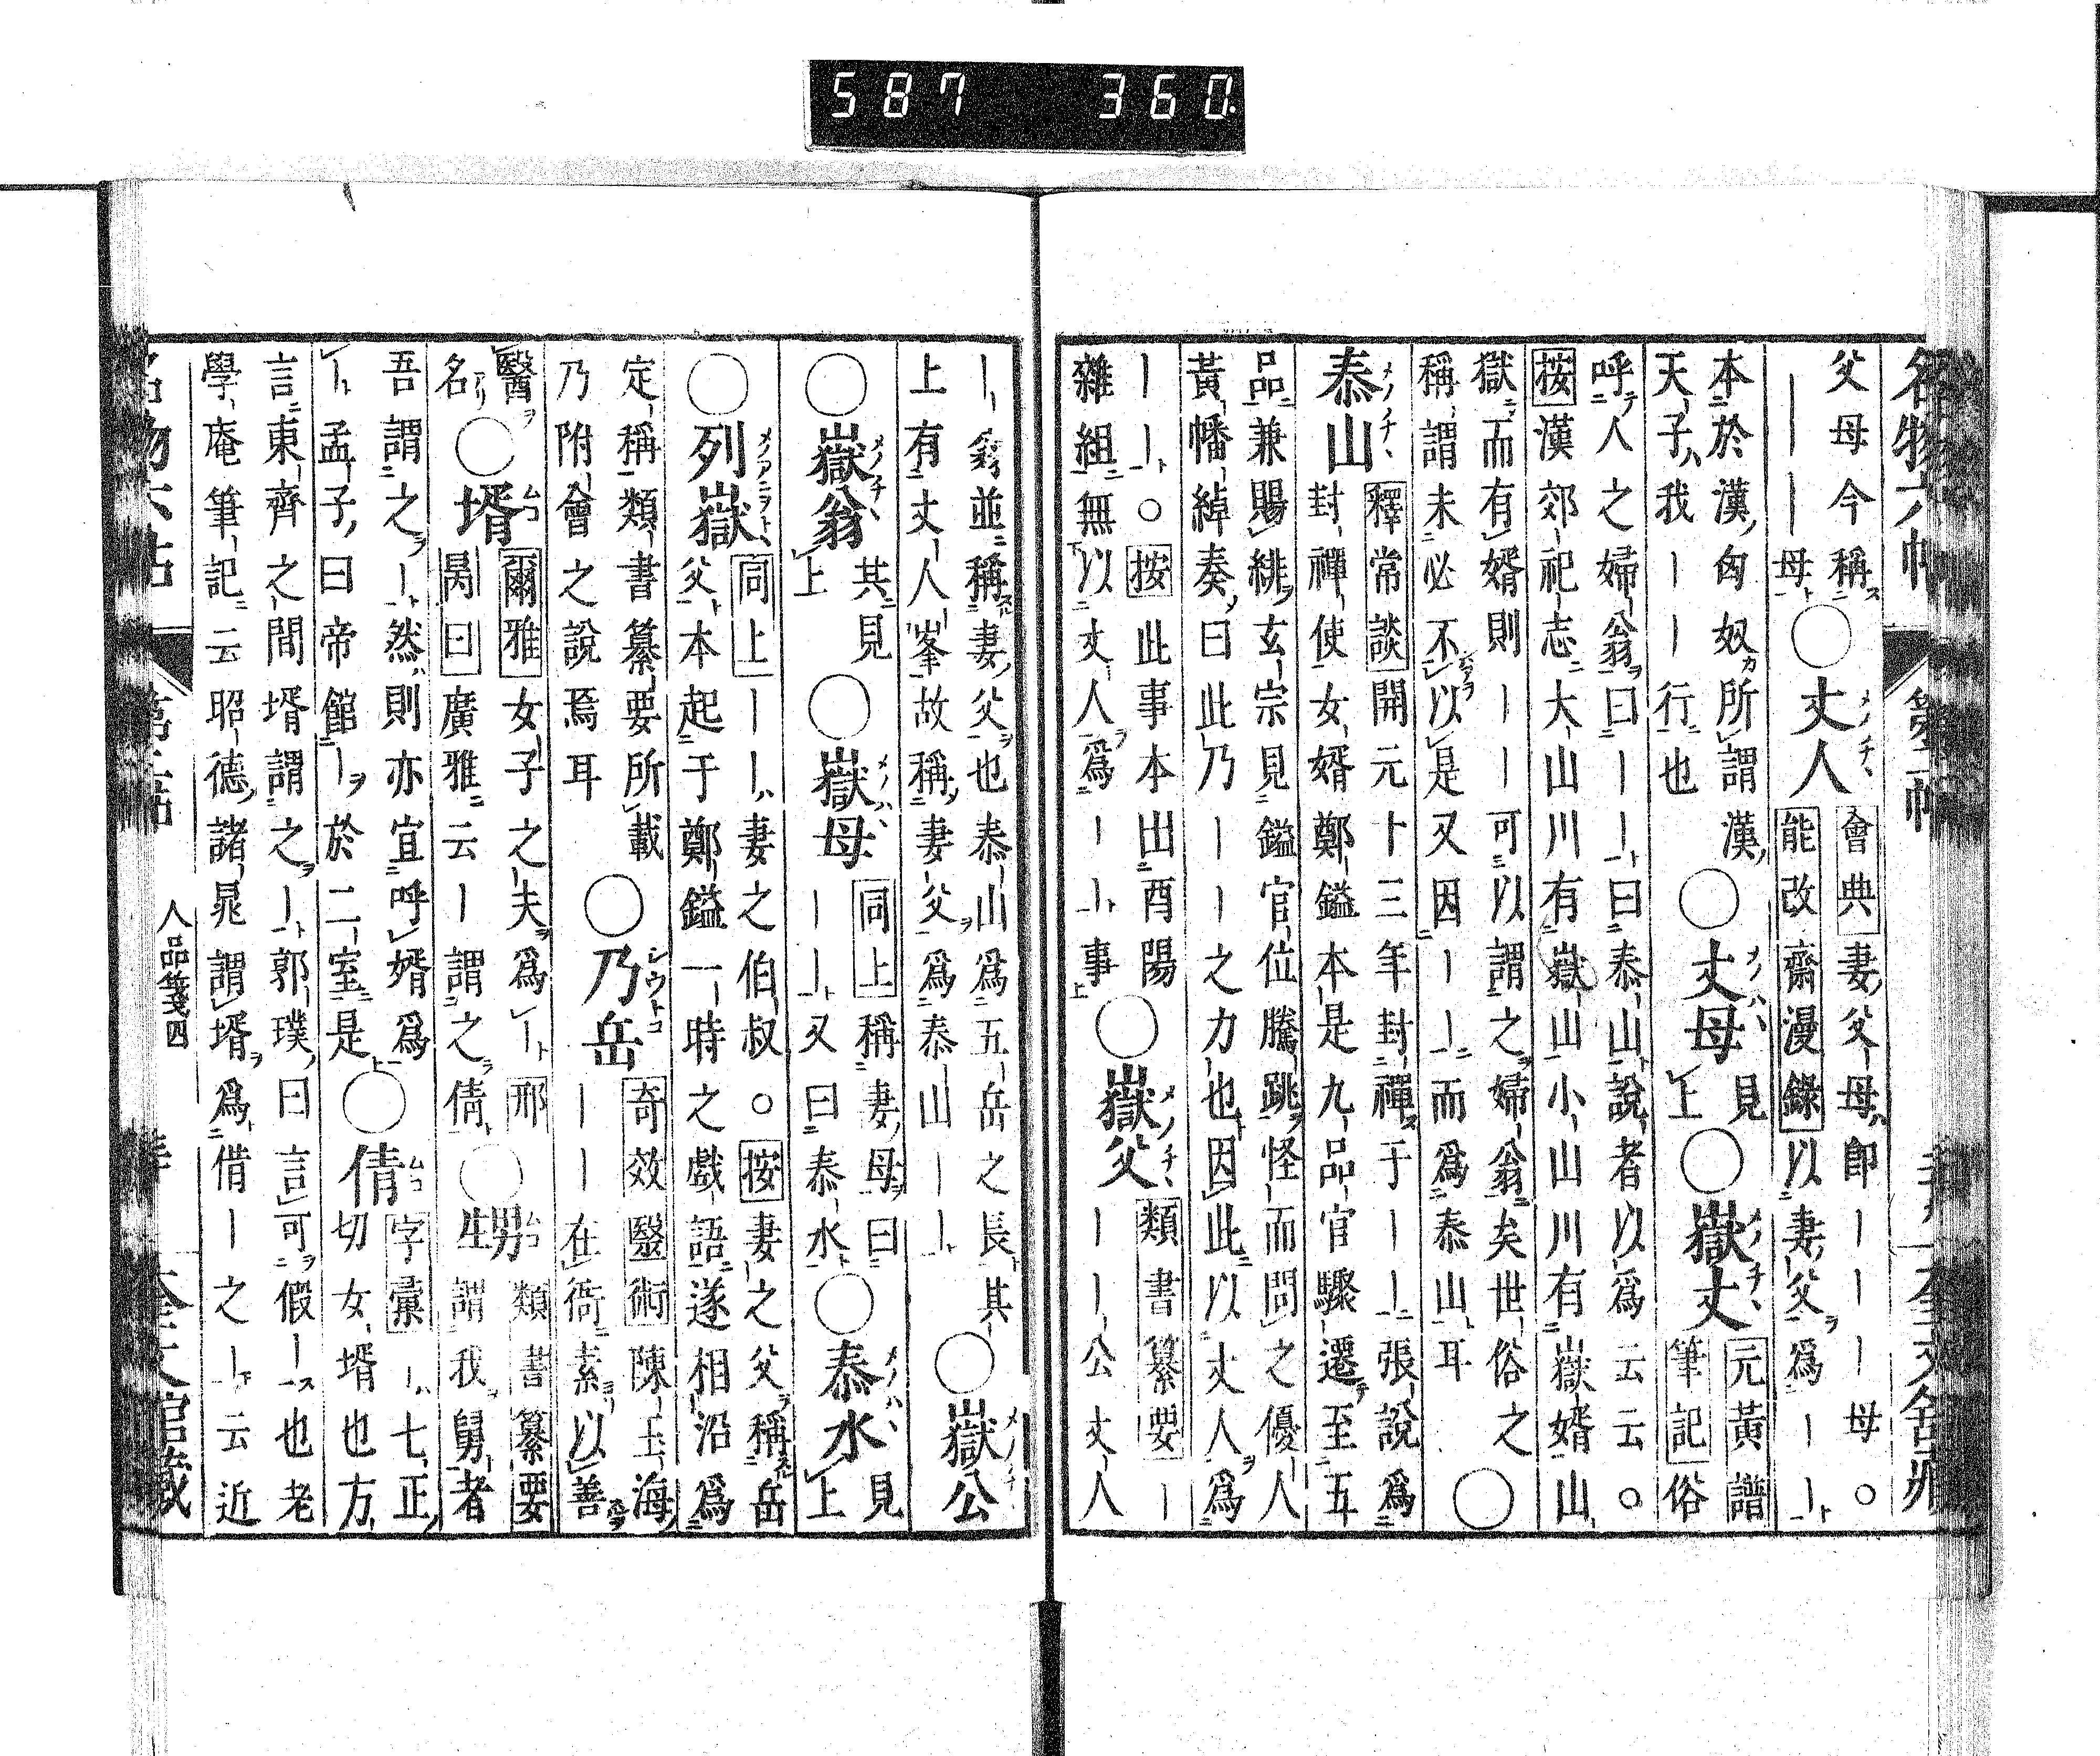 587 360
名物六帖
父母今稱
｜｜｜母
○丈人
會典妻父母即｜｜｜母○
能改齋漫錄以妻父爲｜｜
本於漢匈奴所謂漢
天子我｜｜行也
○丈母
見
上
○嶽丈
元黃譜
筆記俗
呼人之婦翁曰｜｜曰泰山說者以爲云云○
按漢郊祀志大山川有嶽山小山川有嶽壻山
嶽而有壻則｜｜可以謂之婦翁矣世俗之
稱謂未必不以是又因｜｜而爲泰山耳
○
泰山
釋常談開元十三年封禪于｜｜張說爲
封禪使女壻鄭鎰本是九品官驟遷至五
品兼賜緋玄宗見鎰官位騰跳怪而問之優人
黃幡綽奏曰此乃｜｜之力也因此以丈人爲
｜｜○按此事本出酉陽
雜組無以丈人爲｜｜事
○嶽父
類書纂要｜
｜｜公丈人
｜翁並稱妻父也泰山爲五岳之長其
上有丈人峯故稱妻父爲泰山｜｜
○嶽公
○嶽翁
其見
上
○嶽母
同上稱妻母曰
｜｜又曰泰水
○泰水
見
上
○列嶽
同上｜｜妻之伯叔○按妻之父稱岳
父本起于鄭鎰一時之戲語遂相沿爲
定稱類書纂要所載
乃附會之說焉耳
○乃岳
奇效醫術陳玉海
｜｜在衙素以善
醫
名
○壻
爾雅女子之夫爲｜邢
昺曰廣雅云｜謂之倩
○甥
類書纂要
謂我舅者
吾謂之｜然則亦宜呼壻爲
｜孟子曰帝館｜於二室是
○倩
字彙｜七正
切女壻也方
言東齊之間壻謂之｜郭璞曰言可假｜也老
學庵筆記云昭德諸晁謂壻爲借｜之｜云近
人品箋四